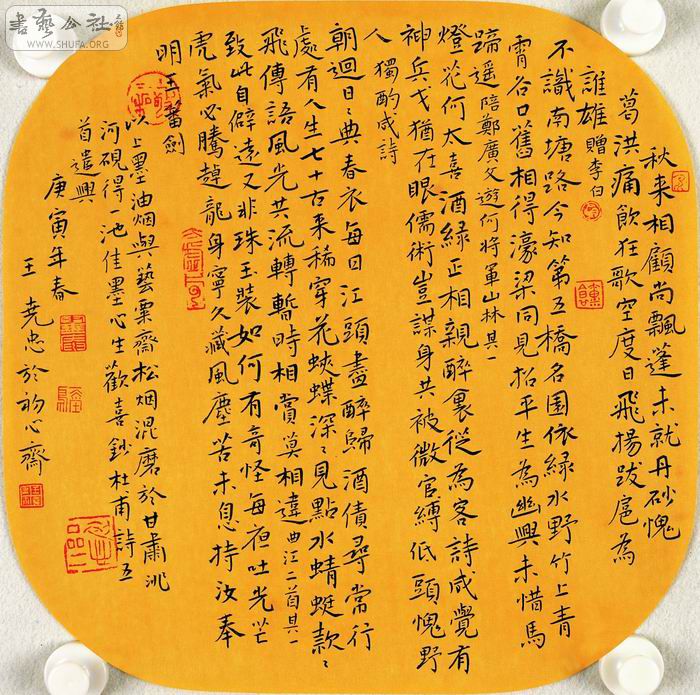 書藝公社
WWW.SHUFA.ORG
秋来相顧尚飄蓬未就丹砂愧
葛洪痛飲狂歌空度日飛揚跋扈為
誰雄 贈李白
不識南塘路今知第五橋名園依緑水野竹上青
霄谷口舊相得濠梁同見招平生為幽興未惜馬
蹄遥 陪鄭廣文遊何將軍山林其一
燈花何太喜酒緑正相親醉裏從為客詩成覺有
神兵戈猶在眼儒術豈謀身共被微官縛低頭愧野
人 獨酌成詩
朝迴日〻典春衣每日江頭盡醉歸酒債尋常行
處有人生七十古来稀穿花蛺蝶深〻見點水蜻蜓款〻
飛傳語風光共流轉暫時相賞莫相違 曲江二首其一
致此自僻遠又非珠玉裝如何有奇怪每夜吐光芒
虎氣必騰趠龍身寧久藏風塵苦未息持汝奉
明王 蕃劍
以上墨油烟與藝粟齋松烟混磨於甘肅洮
河硯得一池佳墨心生歡喜鈔杜甫詩五
首遣興
庚寅年春
王尭忠於初心齋